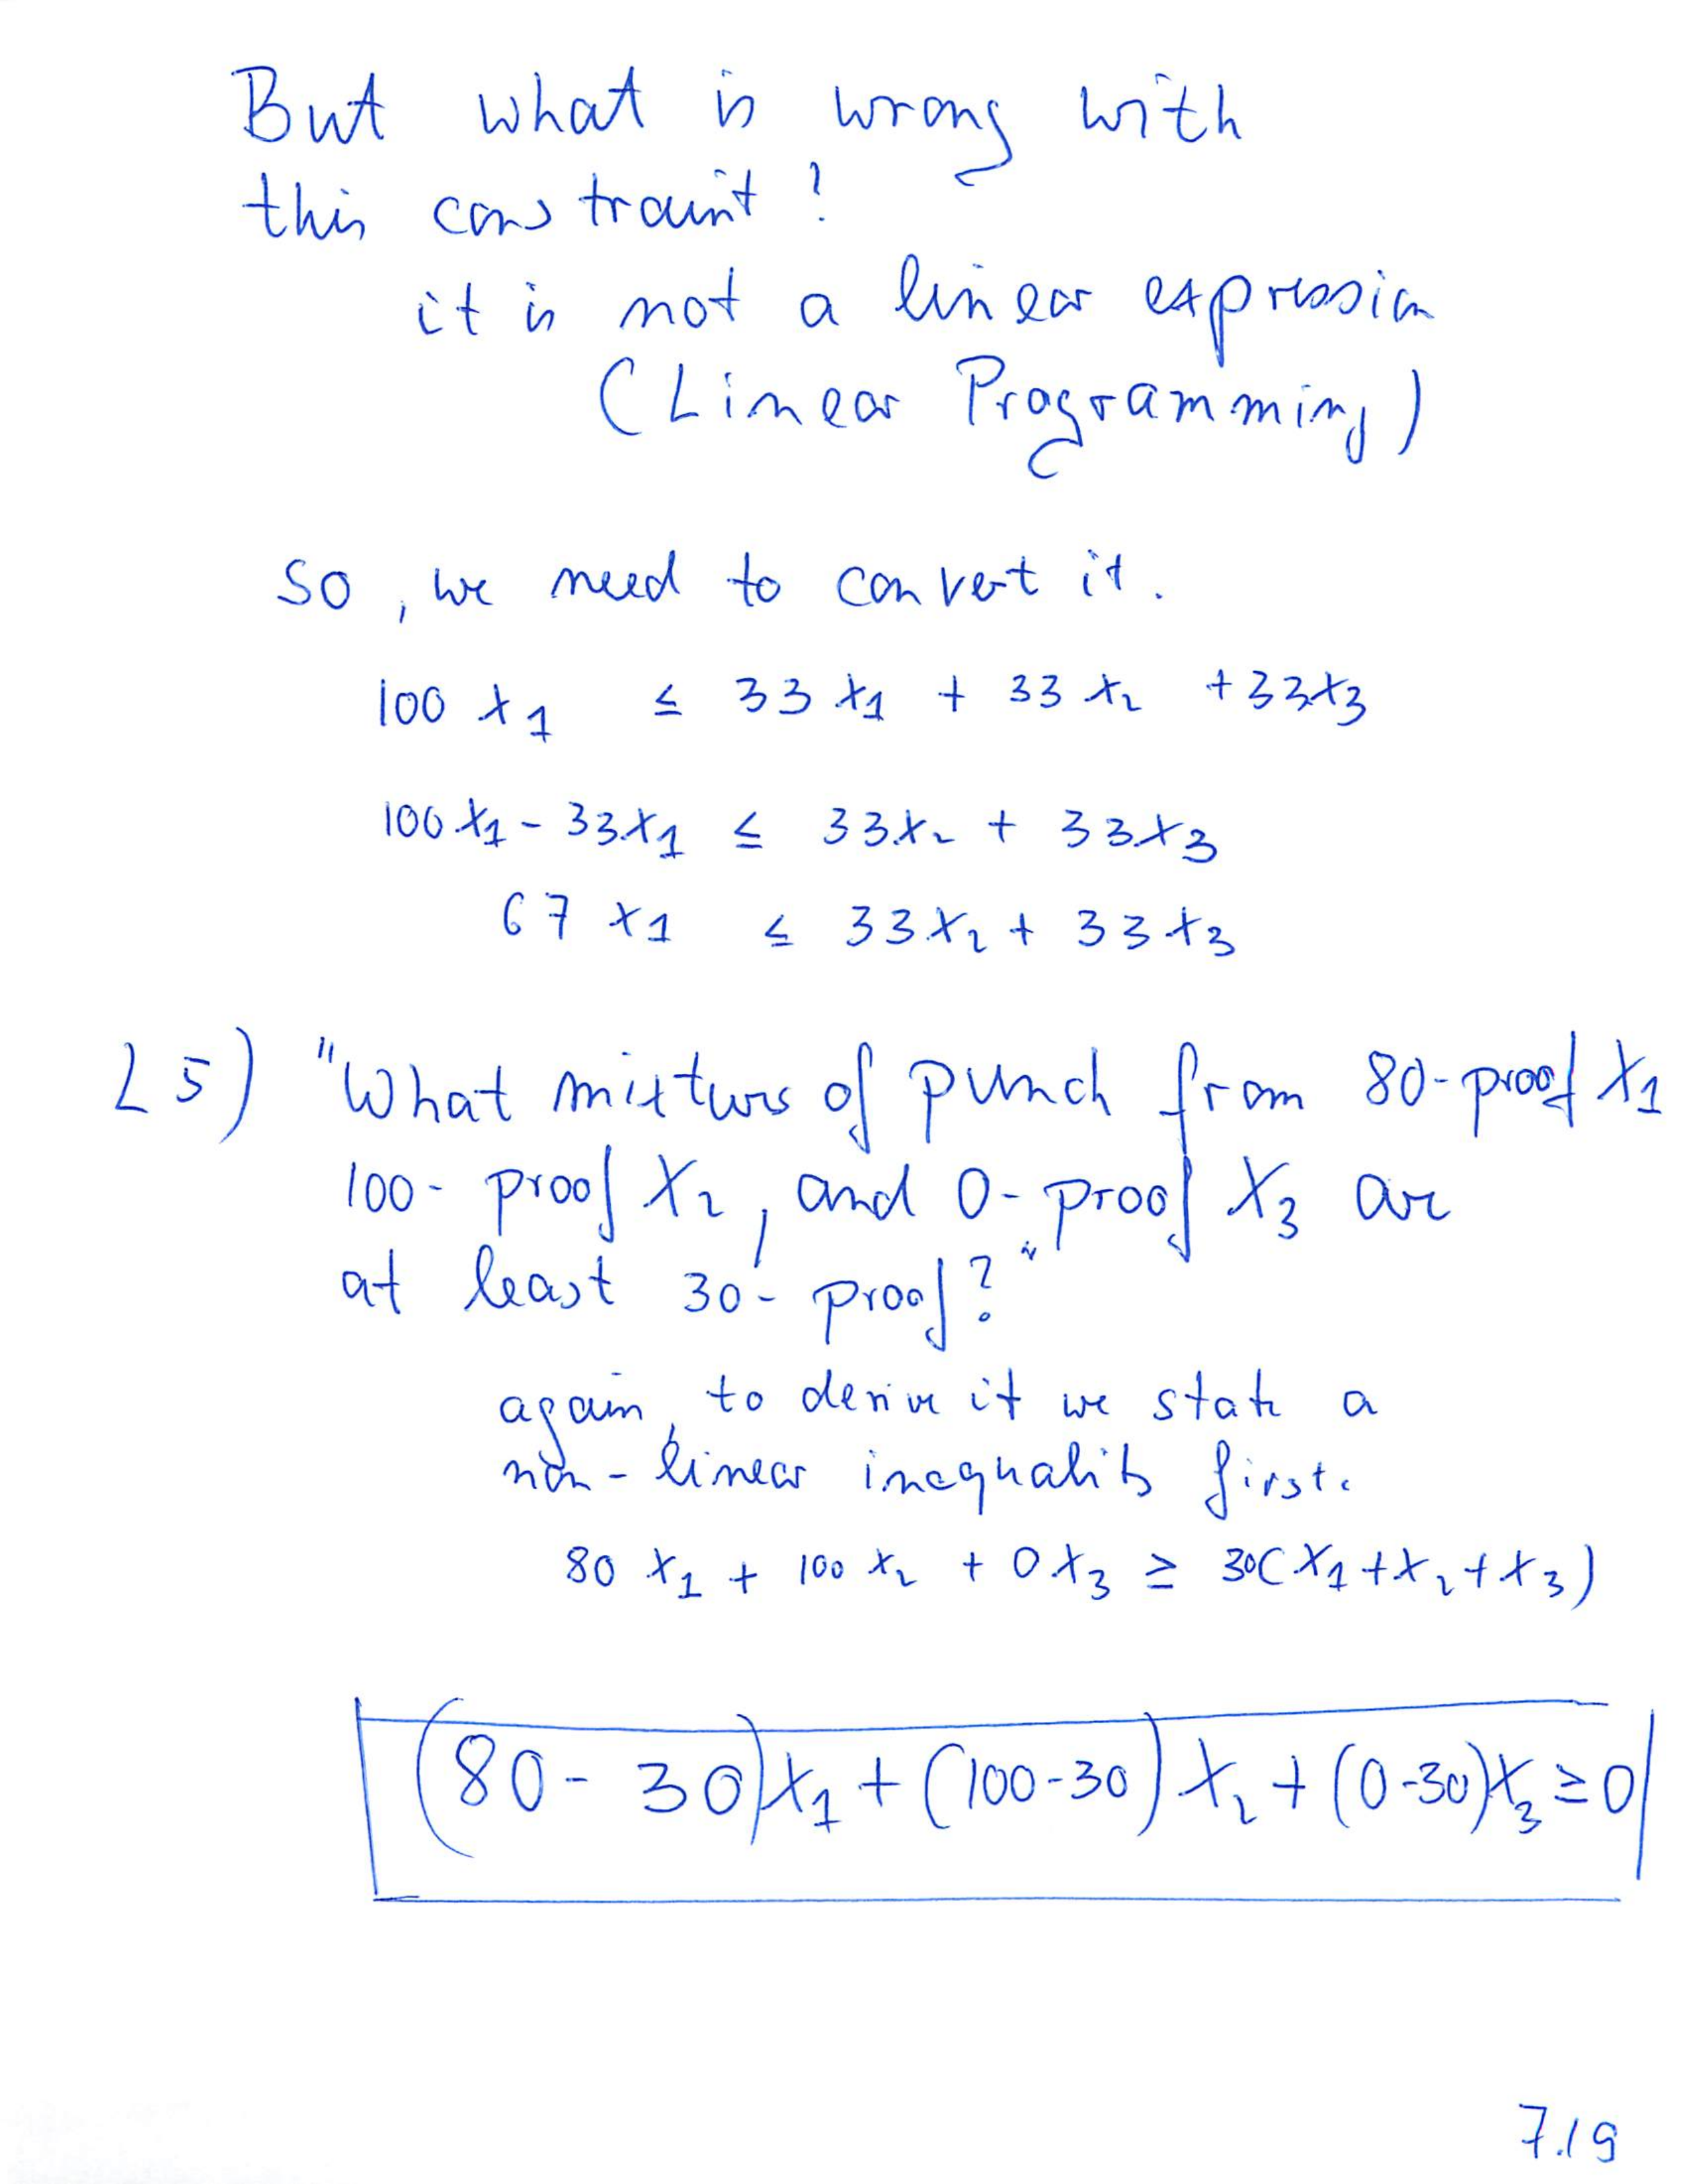 But what is wrong with
this constraint?
it is not a linear expression
(Linear Programming)
so, we need to convert it.
100 x₁ ≤ 33 x₁ + 33 x₂ + 33x₃
100 x₁ - 33x₁ ≤ 33x₂ + 33x₃
67 x₁ ≤ 33x₂ + 33x₃
25) "What mixture of punch from 80-proof X₁
100-proof X₂, and 0-proof X₃ are
at least 30-proof?"
again, to derive it we state a
non-linear inequality first.
80 x₁ + 100 x₂ + 0x₃ ≥ 30(x₁+x₂+x₃)
(80-30)x₁ + (100-30)x₂ + (0-30)x₃ ≥ 0
7.19